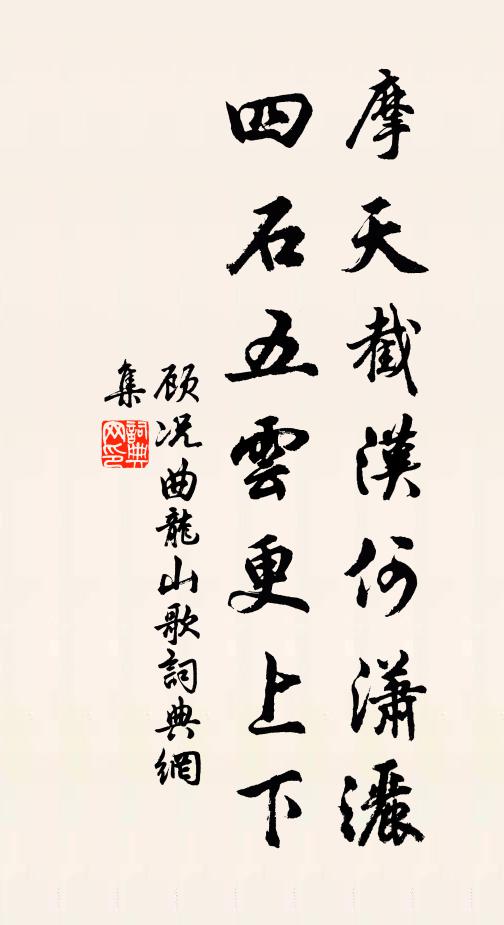 摩天截漢何瀟灑
四石五雲更上下
顾况曲龍山歌詞典網
集
詞典
网印